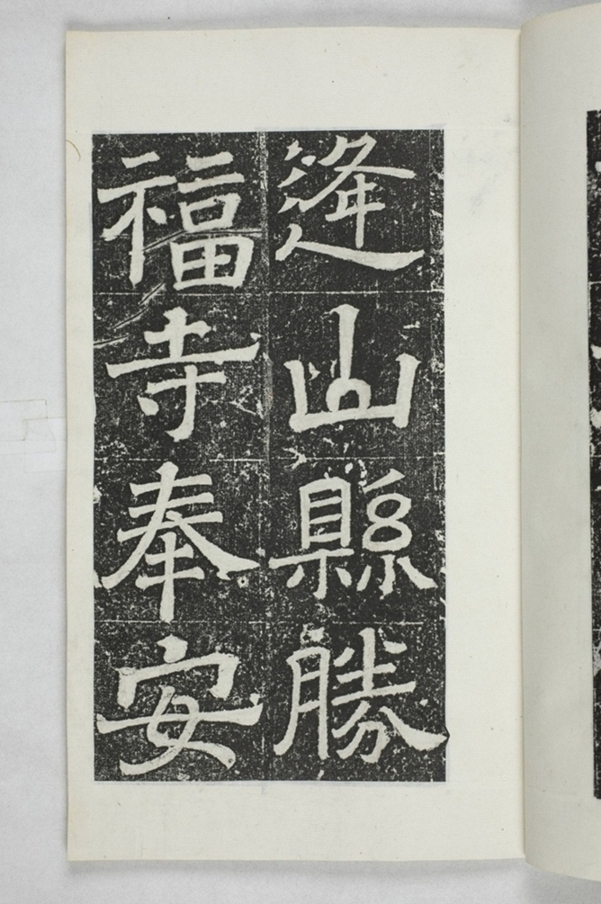 逄山縣勝
福寺奉安